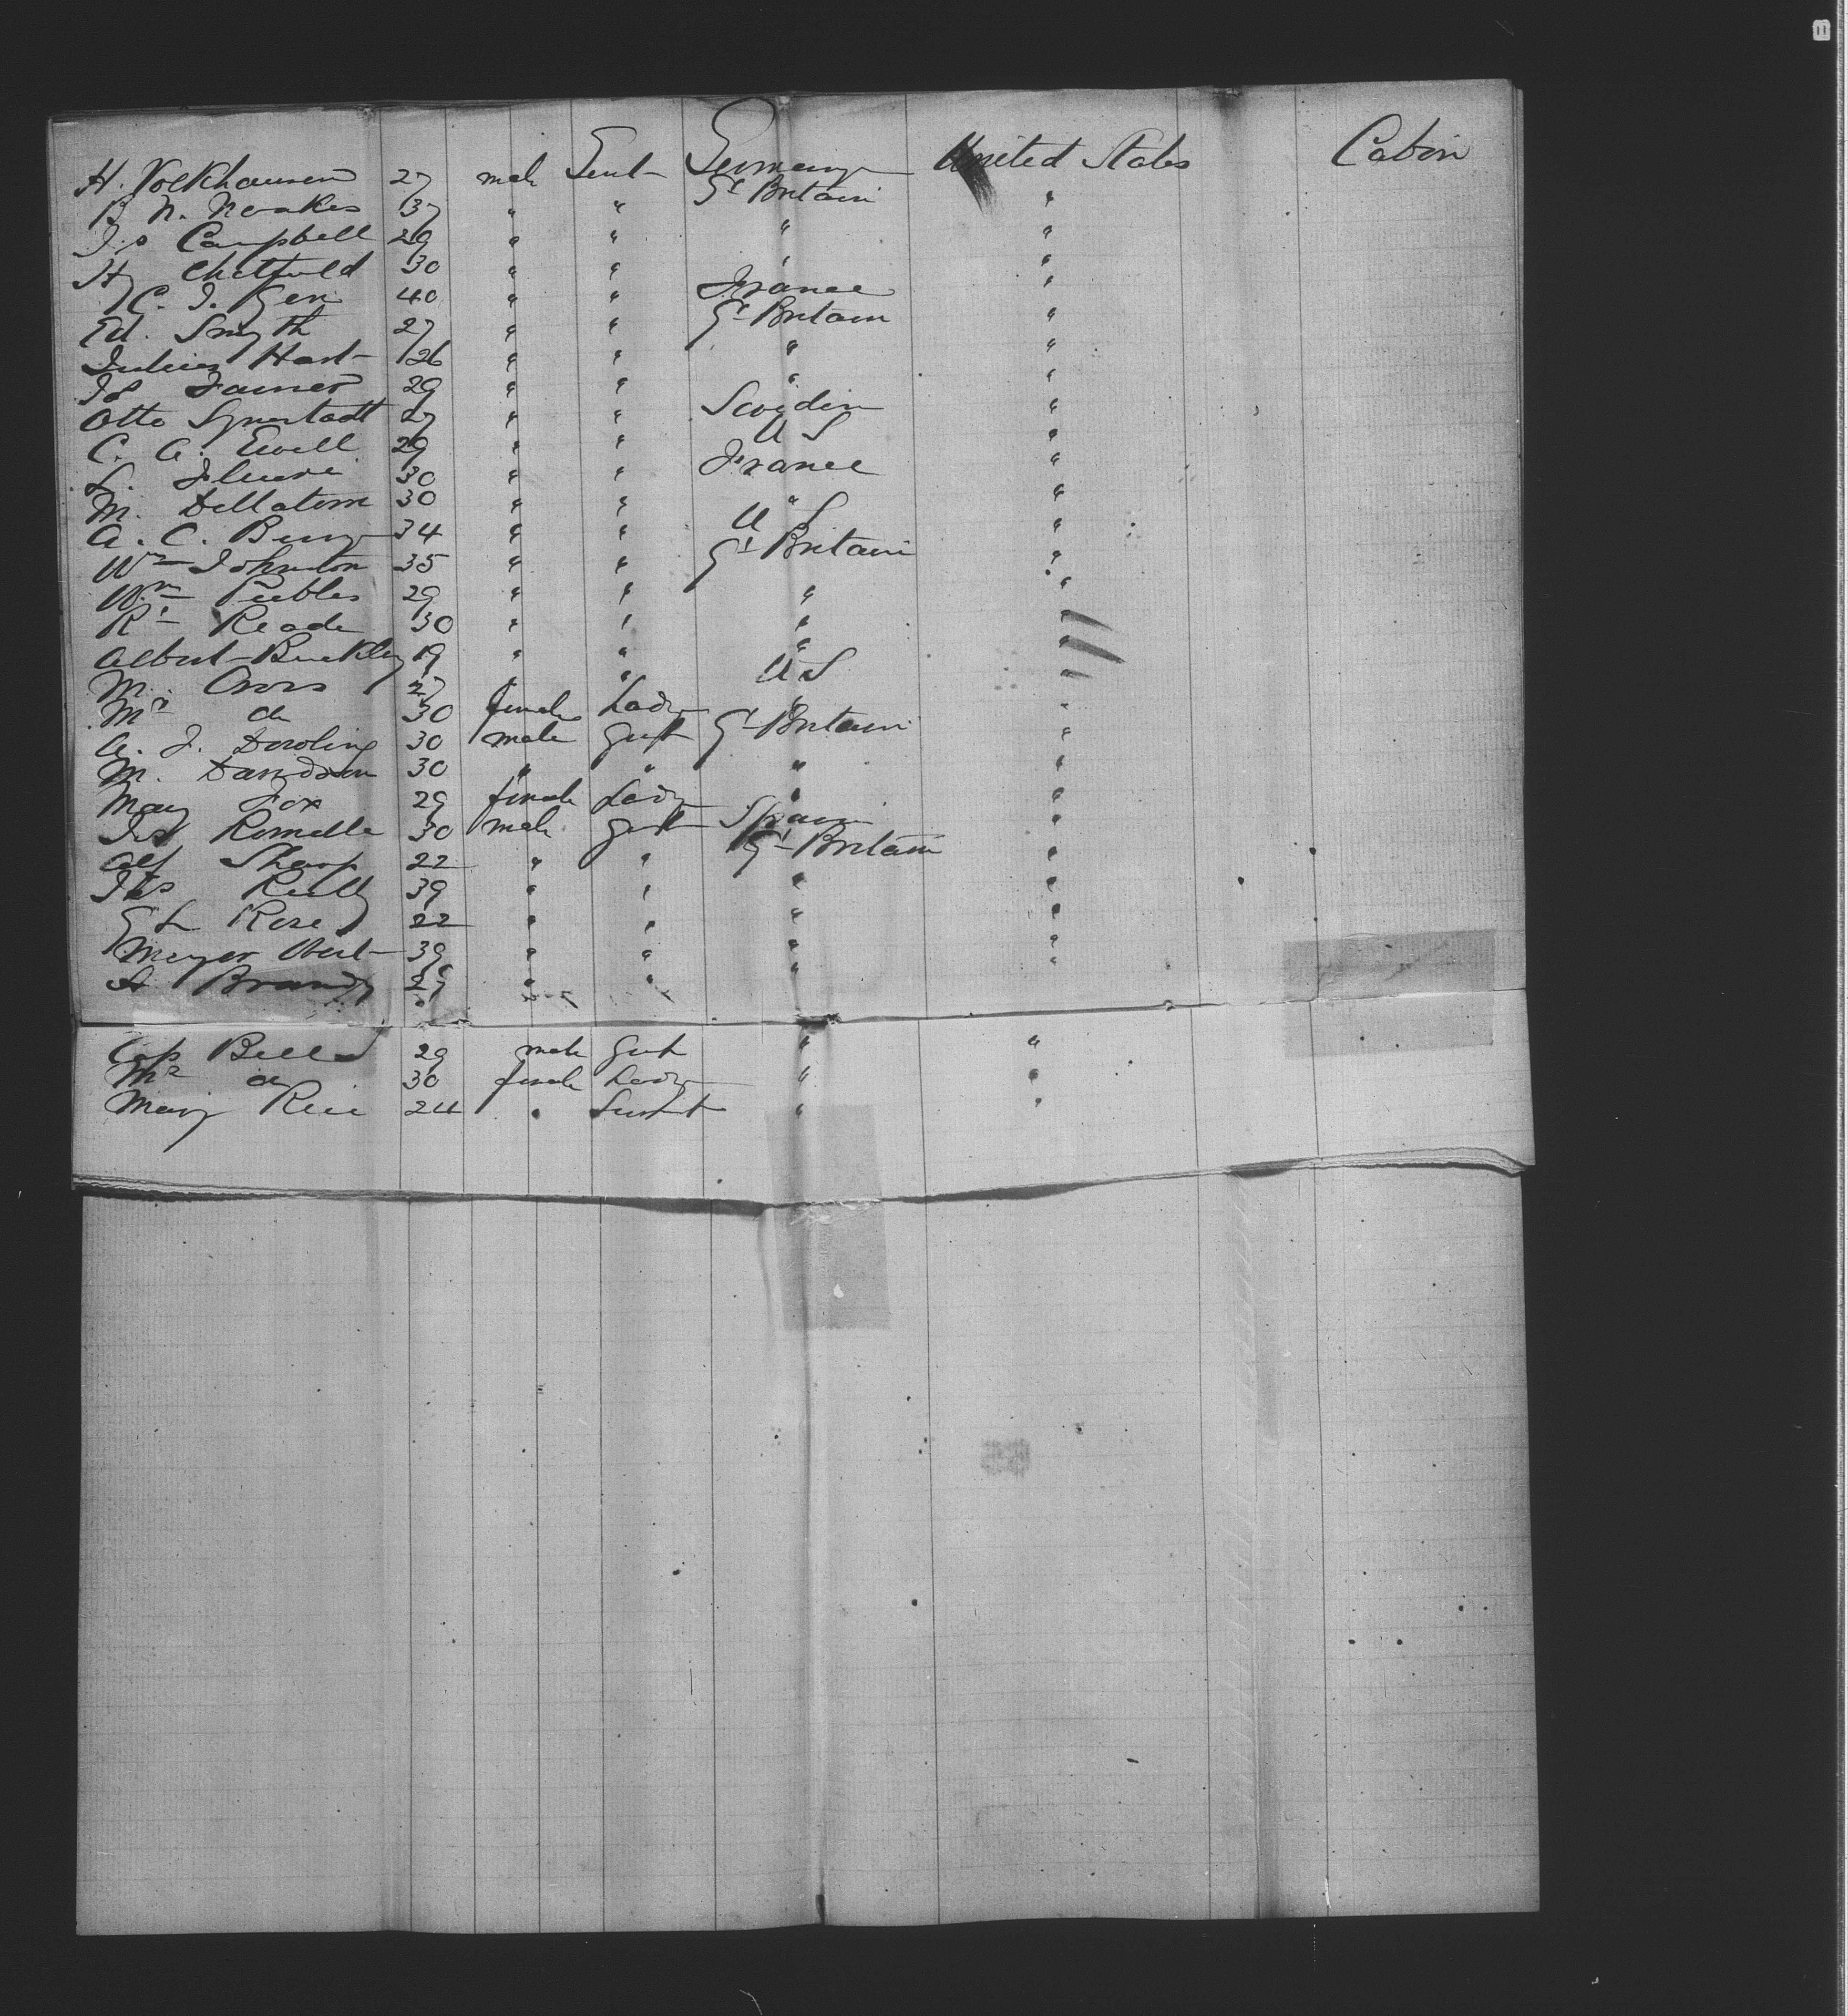 H. Volkhausen 27 male Gent Germany United States Cabin
B N. Noakes 37 " " Gt Britain "
Js Campbell 29 " " " "
Hy Chatfield 30 " " " "
C. J. Gen 40 " " France "
Ed. Smyth 27 " " Gt Britain "
Julius Hart 26 " " " "
Js 29 " " " "
Otto 27 " " Sweden "
C. A. Ewell 29 " " U S "
L. 30 " " France "
M. Dellatorre 30 " " " "
A. C. 34 " " U S "
Wm Johnston 35 " " Gt Britain "
Wm Peebles 29 " " " "
Rt Reade 30 " " " "
Albert Buckley 19 " " " "
M. Cross 27 " " U S "
Mrs do 30 female Lady " "
A. J. Dowling 30 male Gent Gt Britain "
M. Davidson 30 " " " "
Mary Fox 29 female Lady " "
Js 30 male Gent Spain "
Alf Sharp 22 " " Gt Britain "
Jas Reilly 39 " " " "
G L Rose 22 " " " "
Meyer 39 " " " "
A Brandy 29 " " "
Cap Bell 29 male Gent " "
Mrs do 30 female Lady " "
Mary Rice 24 " Servt " "